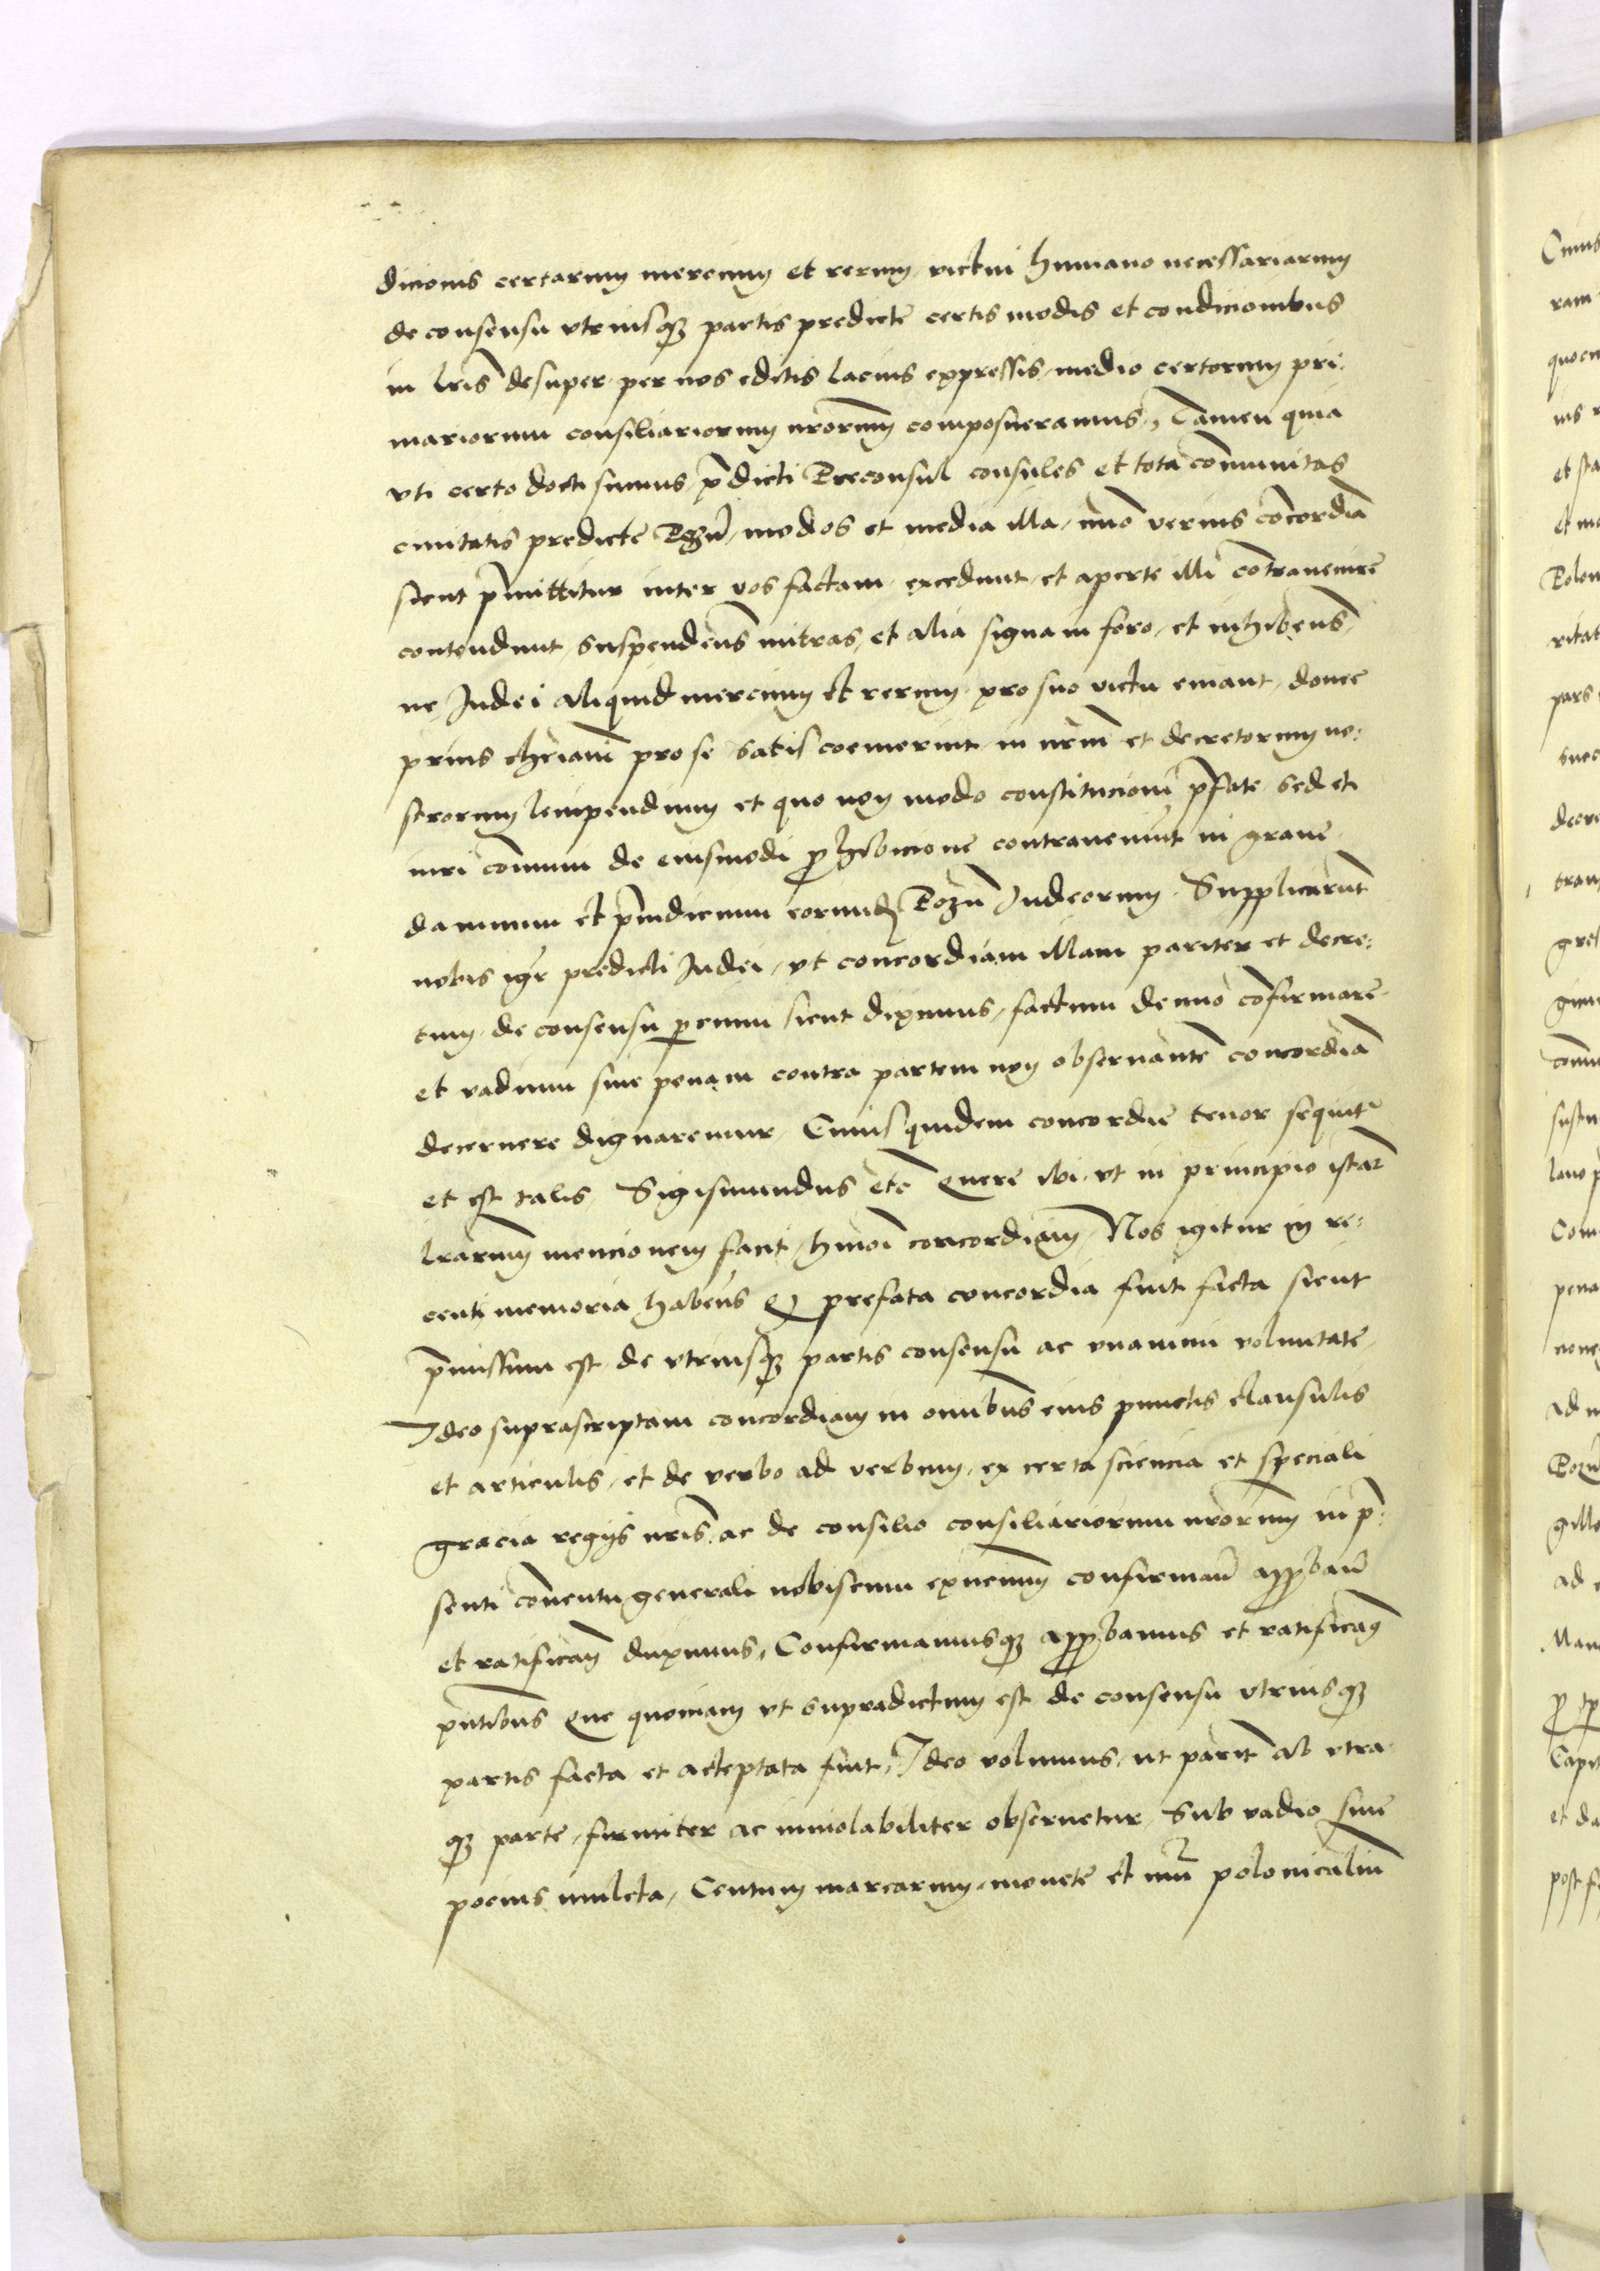 dicionis certarum mercium et rerum victui humano necessariarum
de consensu vtriusq; partis predicte certis modis et condicionibus
in lris desuper per nos editis lacius expressis, medio certorum pri:
mariorum consiliariorum nrorum composueramus, Tamen quia
vti certo docti sumus, pdicti Preconsul consules et tota comunitas
ciuitatis predicte modos et media illa, imo verius concordia
sicut pmittitur inter vos factam, excedunt, et aperte illi contrauenire
contendunt, suspendens mitras, et alia signa in foro, et inhibens,
ne Judei aliquid mercium et rerum pro suo victu emant, donec
prius chriani pro se satis coemerint, in nrm et decretorum no:
strorum leuipendium et quo non modo constitucioni pfate, sed et
iuri comuni de eiusmodi prohibicione contraueniunt in graue
damnum et piudicium eorund Pozn Judeorum. Supplicarunt
nobis igr predicti Judei, vt concordiam illam pariter et decre:
tum de consensu parcium sicut diximus, factum denuo cofirmare
et vadium siue penam contra partem non obseruante concordia
decernere dignaremur, Cuius quidem concordie tenor sequit
et est talis Sigismundus etc Quere ibi vt in principio istar
lrarum mencionem facit, hmoi concordiam, Nos igitur in re:
centi memoria habens q prefata concordia fuit facta sicut
pmissum est de vtriusq; partis consensu ac vnanimi voluntate,
Ideo suprascriptam concordiam in omibus eius punctis clausulis
et articulis, et de verbo ad verbum, ex certa sciencia et speciali
gracia regijs nris, ac de consilio consiliariorum nrorum in p:
senti conuentu generali nobiscum exiencium confirmand approband
et ratificand duximus, Confirmamusq; approbamus et ratificam
pntibus Que quoniam vt supradictum est de consensu vtriusq;
partis facta et acceptata fuit, Ideo volumus, vt parit ab vtra
q; parte, firmiter ac inuiolabiliter obseruetur, Sub vadio siue
pocius mulcta, Centum marcarum, monete et nu polonicaliu